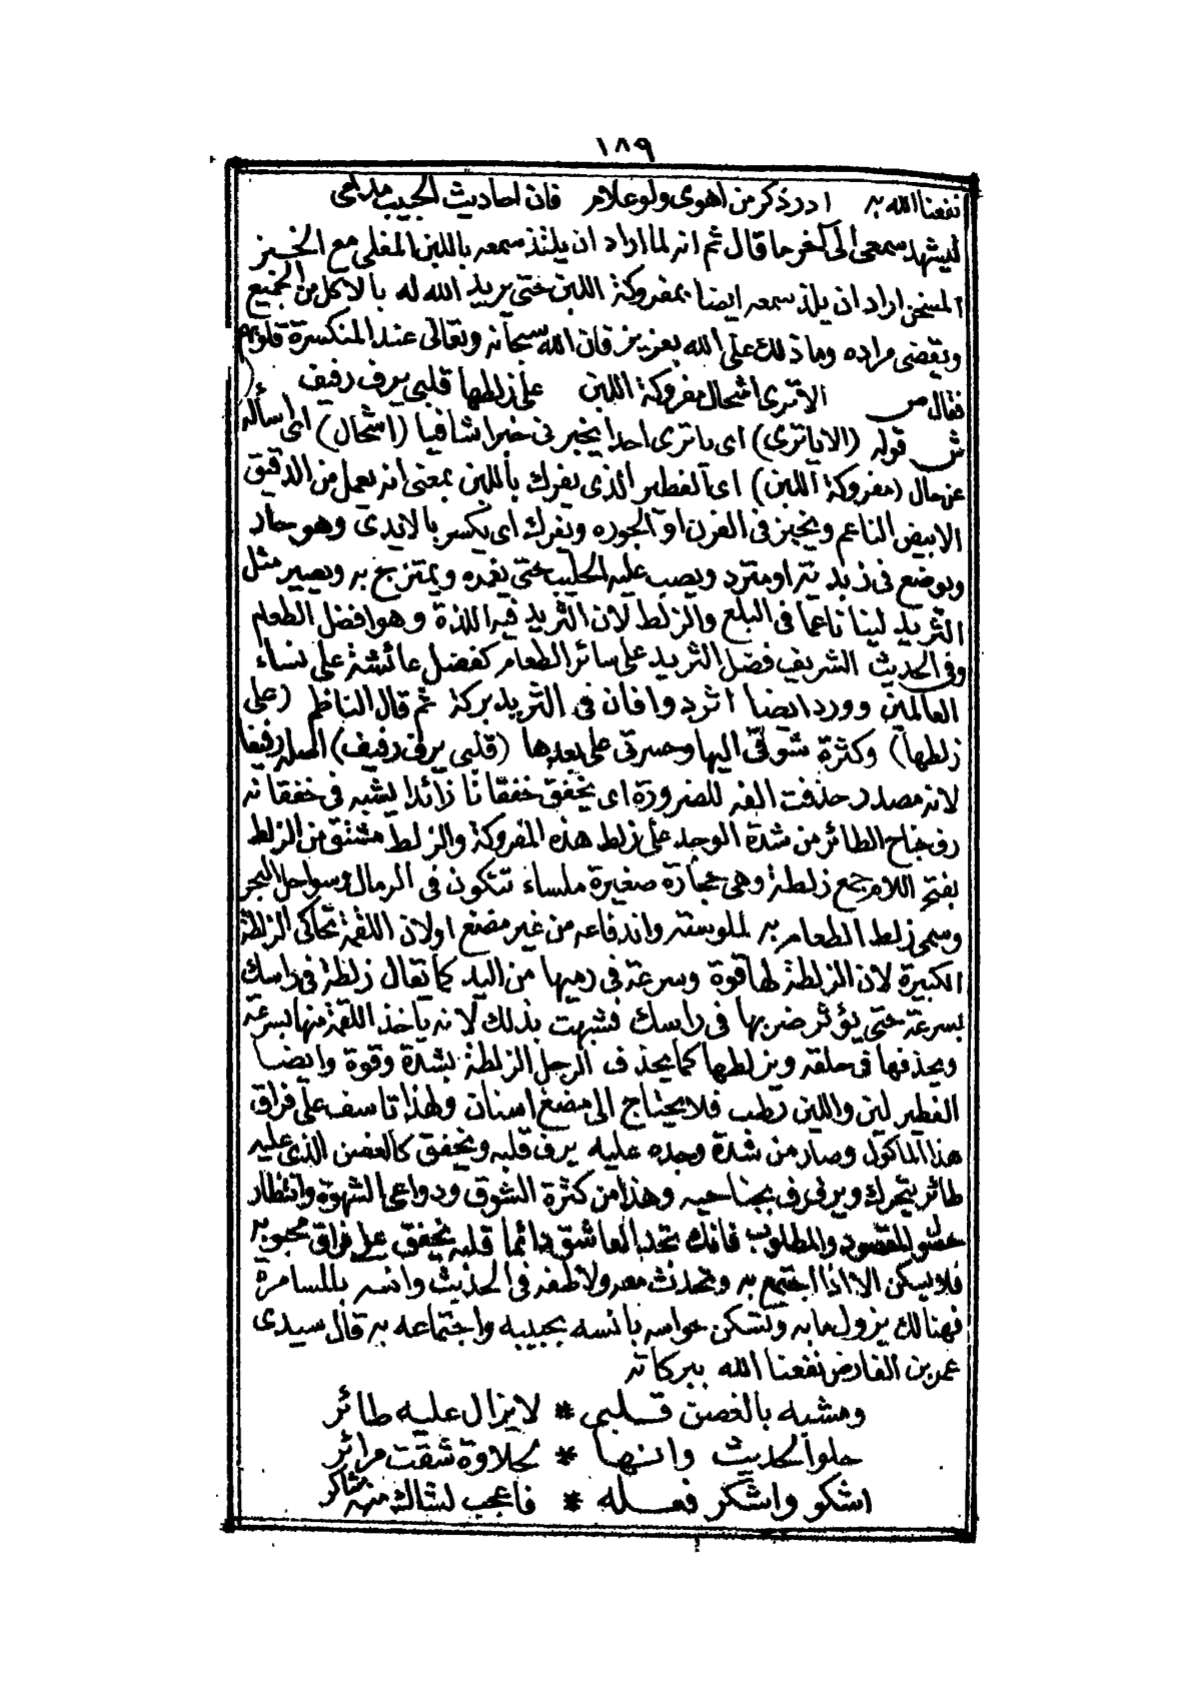 ١٨٩
نفعنا الله به ادر ذكر من اهوى ولو علام فان احاديث الحبيب مدامى
ليشهد سمعى الى كغر ما قال ثم انه لما اراد ان يلتذ سمعه باللبن المغلى مع الخبز
المسخن اراد ان يلذ سمعه ايضا بمفروكة اللبن حتى يريد الله له بالاكل من الجميع
ويقضى مراده وما ذلك على الله بعزيز فان الله سبحانه وتعالى عند المنكسرة قلوبهم
فقال ص الا ترى اشحال مفروكة اللبن على زلطها قلبى يرف رفيف
ش قوله (الا ياترى) اى ياترى احدا يخبرنى خبرا شافيا (اشحال) اى اسأله
عن حال (مفروكة اللبن) اى الفطير الذى يفرك باللبن بمعنى انه يعمل من الدقيق
الابيض الناعم ويخبز فى الفرن او الجوره ويفرك اى يكسر بالايدى وهو حار
ويوضع فى زبدية او مترد ويصب عليه الحليب حتى يغمره ويمتزج به ويصير مثل
الثريد لينا ناعما فى البلع والزلط لان الثريد فيه اللذة وهو افضل الطعام
وفى الحديث الشريف فضل الثريد على سائر الطعام كفضل عائشة على نساء
العالمين وورد ايضا اثردوا فان فى الثريد بركة ثم قال الناظم (على
زلطها) وكثرة شوقى اليها وحسرتى على بعدها (قلبى يرف رفيف) اصله رفيفا
لانه مصدر حذفت الفه للضرورة اى يخفق خفقانا زائدا يشبه فى خفقانه
رف جناح الطائر من شدة الوجد على زلط هذه المفروكة والزلط مشتق من الزلط
بفتح اللام جمع زلطة وهى حجارة صغيرة ملساء تتكون فى الرمال وسواحل البحر
وسمى زلط الطعام به لملوسته واندفاعه من غير مضغ اولان اللقمة تحاكى الزلطة
الكبيرة لان الزلطة لها قوة وسرعة فى رميها من اليد كما تقال زلطة فى راسك
بسرعة حتى يؤثر ضربها فى راسك فشبهت بذلك لانه ياخذ اللقمة منها بسرعة
ويحذفها فى حلقه ويزلطها كما يحذف الرجل الزلطة بشدة وقوة وايضا
الفطير لين واللبن رطب فلا يحتاج الى مضغ اسنان ولهذا تاسف على فراق
هذا الماكول وصار من شدة وجده عليه يرف قلبه ويخفق كالغصن الذى عليه
طائر يتحرك ويرفرف بجناحيه وهذا من كثرة الشوق ودواعى الشهوة وانتظار
حضو للمقصود والمطلوب فانك تجد العاشق دائما قلبه يخفق على فراق محبوبه
فلا يسكن الا اذا اجتمع به وتحدث معه ولاطفه فى الحديث وانسه بالمسامرة
فهنالك يزول ما به وتسكن حواسه بائنسه بحبيبه واجتماعه به قال سيدى
عمر بن الفارض نفعنا الله ببركاته
ومشبه بالغصن قلبى * لايزال عليه طائر
حلو الحديث وانها * لحلاوة شقت مرائر
اشكو واشكر فعله * فاعجب لشاك منه شاكر